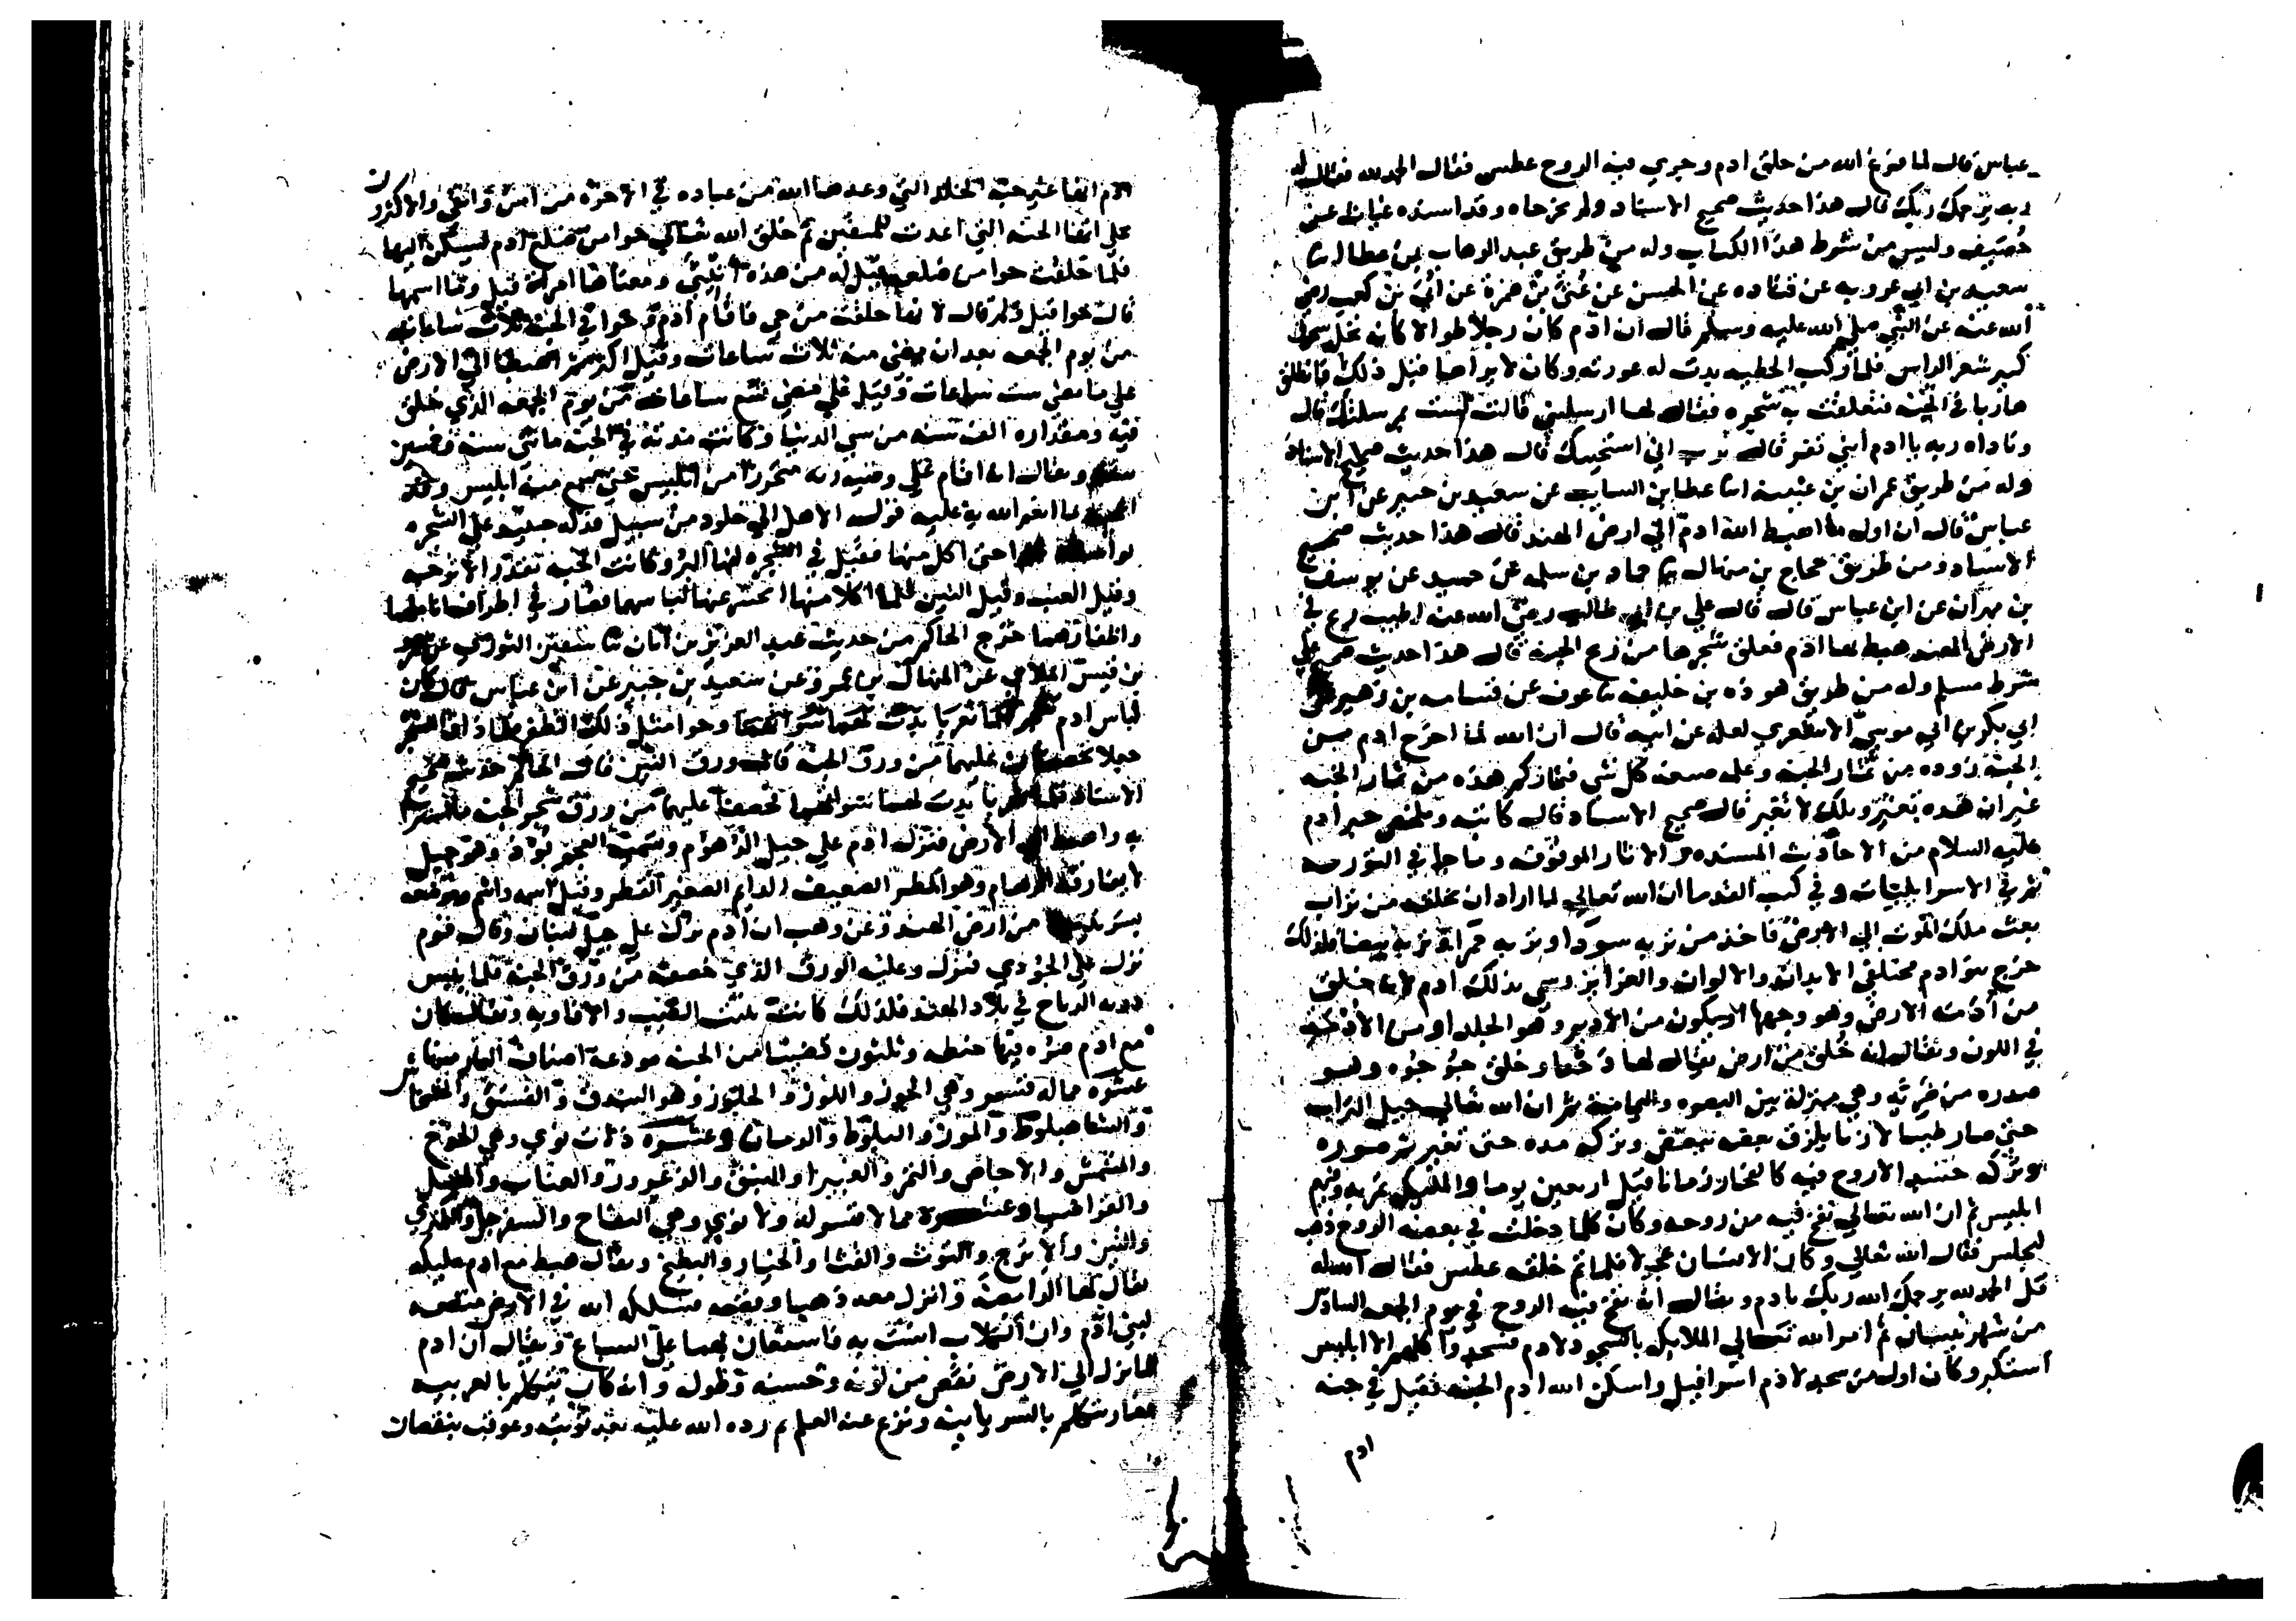 عباس قال لما فرغ الله من خلق ادم وجري فيه الروح عطس فقال الحمد لله فقال له
ربه يرحمك ربك قال هذا حديث صحيح الاسناد ولم يخرجاه وقد اسنده عتاب عن
خصيف وليس من شرط هذا الكتاب وله من طريق عبد الوهاب بن عطا
سعيد بن ابي عروبه عن قتاده عن الحسن عن عتي بن ضمرة عن ابي بن كعب رضي
الله عنه عن النبي صلي الله عليه وسلم قال ان ادم كان رجلا طوالا كانه نخل سحوق
كبير شعر الراس فلما ركب الخطيه بدت له عورته وكان لا يراها قبل ذلك فانطلق
هاربا في الجنه فتعلقت به شجره فقال لها ارسليني قالت لست بمرسلتك قال
وناداه ربه يا ادم امني تفر قال يرب اني استحييك قال هذا حديث صحيح الاسناد
وله من طريق عمران بن عيينه انا عطا بن السايب عن سعيد بن جبير عن ابن
عباس قال ان اول ما اهبط الله ادم الي ارض الهند قال هذا حديث صحيح
الاسناد ومن طريق حجاج بن منهال حماد بن سلمه عن حميد عن يوسف
بن مهران عن ابن عباس قال قال علي بن ابي طالب رضي الله عنه اطيب ريح في
الارض الهند هبط بها ادم فعلق شجرها من ريح الجنه قال هذا حديث صحيح علي
شرط مسلم وله من طريق هوذه بن خليفه عوف عن قسامه بن زهير
ابي بكر بن ابي موسي الاشعري لعله عن ابيه قال ان الله لما اخرج ادم من
الجنه زوده من ثمار الجنه وعلمه صنعه كل شي فثماركم هذه من ثمار الجنه
غير ان هذه تتغير وتلك لا تغير قال صحيح الاسناد قال كاتبه وملخص خبر ادم
عليه السلام من الاحاديث المسنده والاثار الموقوفه وما جا في التورىه
ثم في الاسرايليات وفي كتب القدما ان الله تعالي لما اراد ان يخلقه من تراب
بعث ملك الموت الي الارض فاخذ من تربه سودا وتربه حمرا وتربه بيضا فلذلك
خرج بنو ادم مختلفي الابدان والالوان والغرايز وسمي بذلك ادم لانه خلق
من أدمة الارض وهو وجهها او يكون من الاديم وهو الجلد او من الأدمه
في اللون ويقال انه خلق من ارض يقال لها دحنا وخلق جؤجؤه وهو
صدره من ضريه وهي منزلة بين البصره واليمامة ثم ان الله تعالي جبل التراب
حتي صار طينا لازبا يلزق بعضه ببعض وتركه مده حتي تغير ثم صوره
وتركه جسدا لا روح فيه كالفخار زمانا قيل اربعين يوما والمليكه تمر به وفيهم
ابليس ثم ان الله تعالي نفخ فيه من روحه وكان كلما دخلت في بعضه الروح ذهب
ليجلس فقال الله تعالي وكان الانسان عجولا فلما تم خلقه عطس فقال الله له
قل الحمد لله يرحمك الله ربك يا ادم ويقال انه نفخ فيه الروح في يوم الجمعه السادس
من شهر نيسان ثم امر الله تعالي الملايكه بالسجود لادم فسجدوا كلهم الا ابليس
استكبر وكان اول من سجد لادم اسرافيل واسكن الله ادم الجنه فقيل في جنه
ادم
ادم انها غير جنة الخلد التي وعدها الله من عباده في الاخره من امن واتقي والاكثرون
علي انها الجنه التي اعدت للمتقين ثم خلق الله تعالي حوا من ضلع ادم ليسكن اليها
فلما خلقت حوا من ضلعه قيل له من هذه ومعناها امراة قيل وما اسمها
قال حوا قيل ولم قال لانها خلقت من حي فاقام ادم وحوا في الجنه ثلاث ساعات
من يوم الجمعه بعد ان مضي منه ثلاث ساعات وقيل اكثر ثم اهبطا الي الارض
علي ما مضي ست ساعات وقيل علي مضي تسع ساعات من يوم الجمعه الذي خلق
فيه ومقداره الف سنه من سني الدنيا وكانت مدته في الجنه مائتي سنه وخمسين
سنه ويقال انه اقام علي وصيه ربه متحرزا من ابليس حتي ابليس وقد
بما انعم الله به عليه فزله الامل الي خلود من سبيل فدله حينيذ علي الشجره
حتي اكل منها فقيل في الشجره انها البر وكانت الحبه تقدر الاترجه
وقيل العنب وقيل التين فلما اكلا منها انحسر عنها لباسهما فصار في اطراف اناملهما
واظفارهما خرج الحاكم من حديث عبد العزيز بن ابان سفين الثوري عن عمرو
بن قيس الملاي عن المنهال بن عمرو عن سعيد بن جبير عن ابن عباس قال كان
لباس ادم وحوا مثل ذلك الظفر فلما ذاقا الشجره
جعلا يخصفان عليهما من ورق الجنه قال ورق التين قال الحاكم حديث صحيح
الاسناد بدت لهما سواتهما خصفا عليهما من ورق شجر الجنه
واهبط الي الارض فنزل ادم علي جبل الراهوم وتسميه العجم نوذ وهو جبل
لا يفارقه الرهام وهو المطر الضعيف الدايم الصغير القطر وقيل اسمه واشم
بسرنديب من ارض الهند وعن وهب ان ادم نزل علي جبل لبنان وقال قوم
نزل علي الجودي فنزل وعليه الورق الذي خصفه من ورق الجنه فلما يبس
ذرته الرياح في بلاد الهند فلذلك كانت تنبت الطيب والافاويه ويقال كان
مع ادم صره فيها حنطه وثلثون قضيبا من الجنه مودعة اصناف الثمر منها
عشره مما له قشر وهي الجوز واللوز والجلوز وهو البندق والفستق والخشخاش
والشاهبلوط والموز والبلوط والرمان وعشره ذات نوي وهي الخوخ
والمشمش والاجاص والتمر والغبيرا والنبق والزعرور والعناب والمقل
والقراصيا وعشره مما لا قشر له ولا نوي وهي التفاح والسفرجل والكمثري
والتين والاترج والتوت والقثا والخيار والبطيخ ويقال هبط مع ادم مليكه
يقال لها الرابعة وانزل معه ذهبا وفضه فسلكه الله في الارض منفعه
لبني ادم وان الكلاب انست به فاستعان بها علي السباع ويقال ان ادم
لما نزل الي الارض نقص من لونه وحسنه وطوله وانه كان يتكلم بالعربيه
فصار يتكلم بالسريانيه ونزع عنه العلم ثم رده الله عليه بعد توبته وعوقب بنقصان